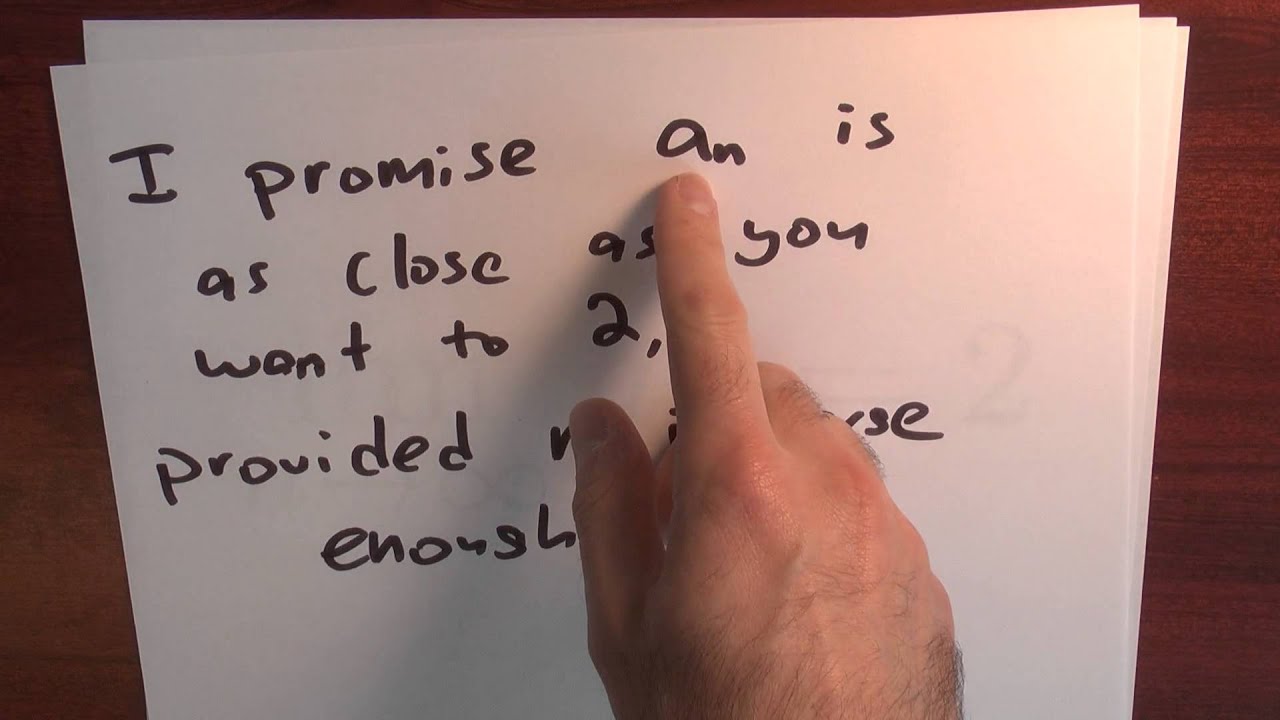 I promise aₙ is
as close as you
want to 2,
provided
enough